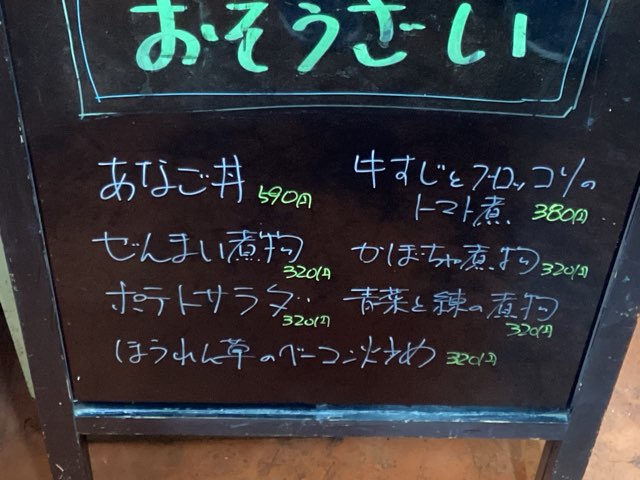 おそうざい
あなご丼 590円
牛すじとブロッコリの
トマト煮 380円
ぜんまい煮物 320円
かぼちゃ煮物 320円
ポテトサラダ 320円
青菜と練の煮物 320円
ほうれん草のベーコン炒め 320円